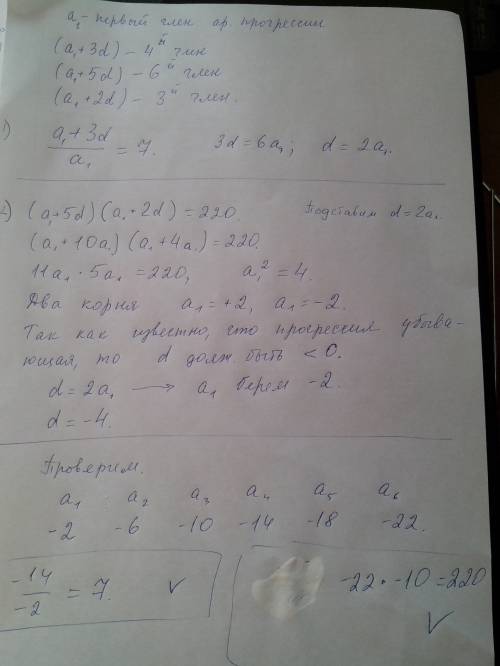 a₁ - первый член ар. прогрессии
(a₁+3d) - 4й член
(a₁+5d) - 6й член
(a₁+2d) - 3й член.
1) (a₁+3d)/a₁ = 7. 3d = 6a₁; d = 2a₁.
2) (a₁+5d)(a₁+2d) = 220. Подставим d = 2a₁.
(a₁+10a₁)(a₁+4a₁) = 220.
11a₁ · 5a₁ = 220, a₁² = 4.
Два корня a₁ = +2, a₁ = -2.
Так как известно, что прогрессия убыва-
ющая, то d долж. быть < 0.
d = 2a₁ → a₁ берем -2.
d = -4.
Проверяем.
a₁ a₂ a₃ a₄ a₅ a₆
-2 -6 -10 -14 -18 -22.
-14/-2 = 7. ✓
-22 · -10 = 220 ✓